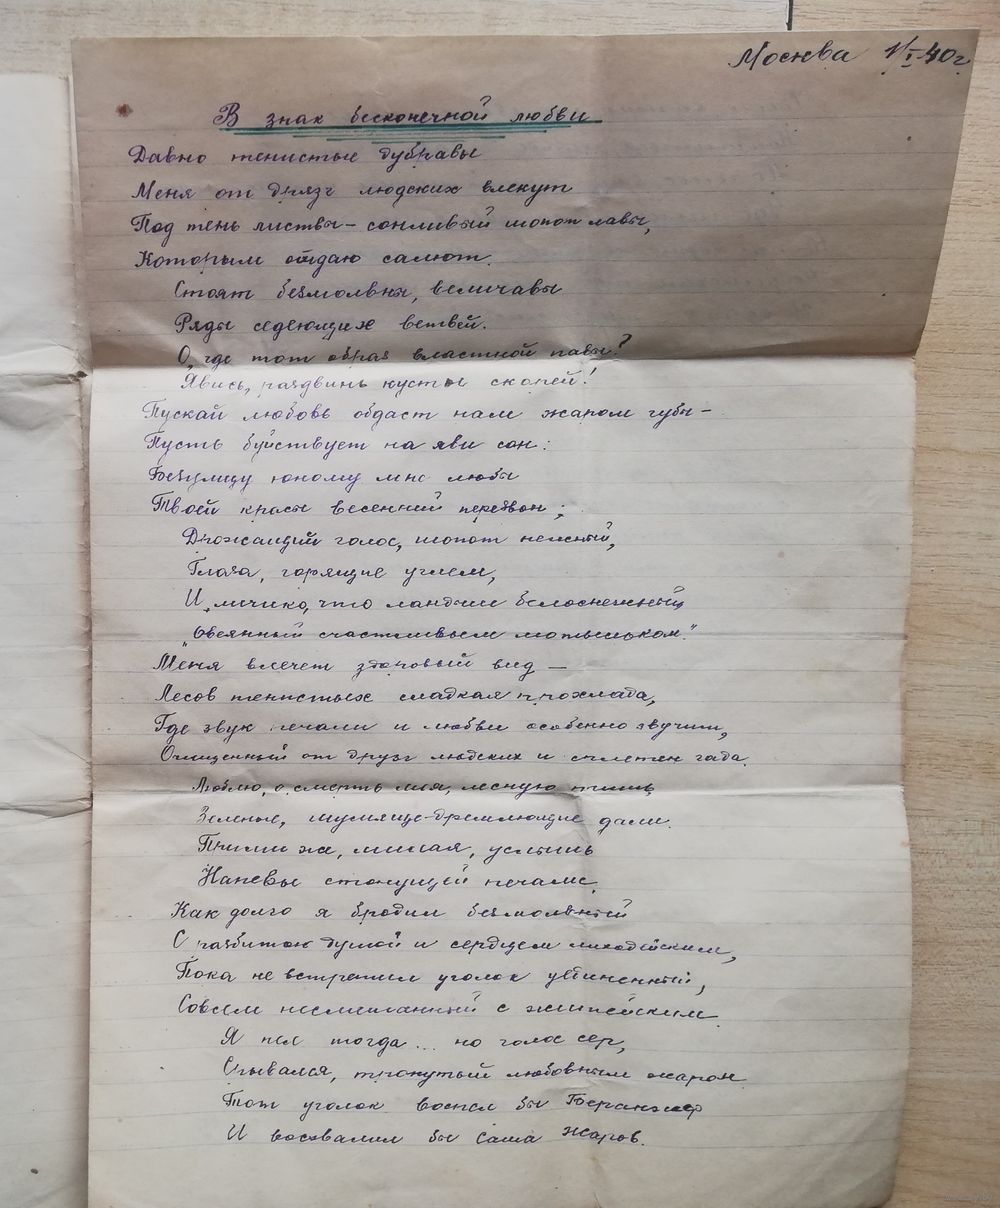 Москва 1/I-40г
В знак бесконечной любви
Давно тенистые дубравы
Меня от дрязг людских влекут
Под тень листвы – сонливый шопот лавы,
Которым отдаю салют.
Стоят безмолвны, величавы
Ряды седеющих ветвей.
О, где тот образ властной павы?
Явись, раздвинь кусты скорей!
Пускай любовь обдаст нам жаром губы –
Пусть буйствует на яви сон:
Безумцу юному мне любы
Твоей красы весенний перезвон;
Дрожащий голос, шопот нежный,
Глаза, горящие углем,
И личико, что ландыш белоснежный,
"Овеянный счастливым мотыльком."
Меня влечет здоровый вид –
Лесов тенистых сладкая прохлада,
Где звук печали и любви особенно звучит,
Очищенный от друзг людских и сплетен гада.
Люблю, о смерть моя, лесную тишь
Зеленые, шумяще-дремлющие дали.
Прими же, милая, услышь
Напевы стонущей печали.
Как долго я бродил безмолвный
С разбитою думой и сердцем лиходейским,
Пока не встретил уголок уединенный,
Совсем несмешанный с житейским.
Я пел тогда... но голос сер,
Срывался, тронутый любовным жаром
Тот уголок воспел бы Беранжер
И восхвалил бы Саша Жаров.